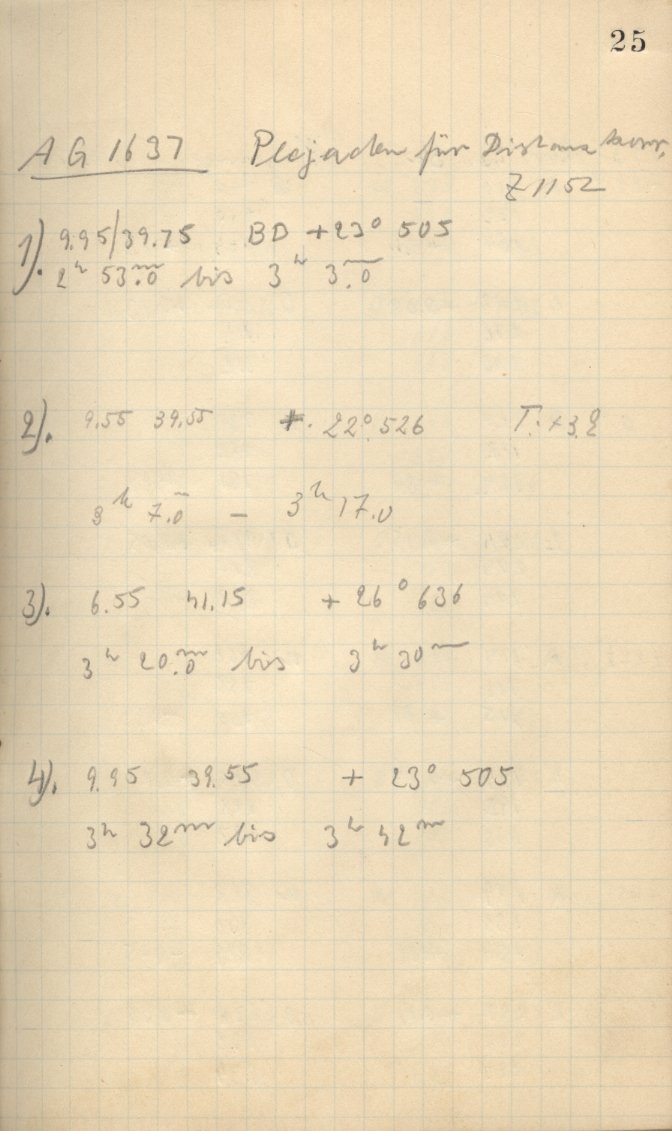 25
AG 1637 Plejaden für Distanz korr.
Z 1152
1). 9.95/39.75 BD +23° 505
2h 53m.0 bis 3h 3m.0
2). 9.55 39.55 +. 22°.526 T: +3.8
3h 7m.0 – 3h 17.0
3). 6.55 41.15 + 26° 636
3h 20m.0 bis 3h 30m
4). 9.95 39.55 + 23° 505
3h 32m bis 3h 42m